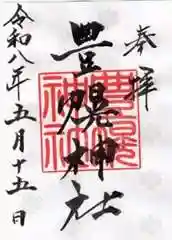 奉拝
豊幌神社
豊幌神社
令和八年五月十五日